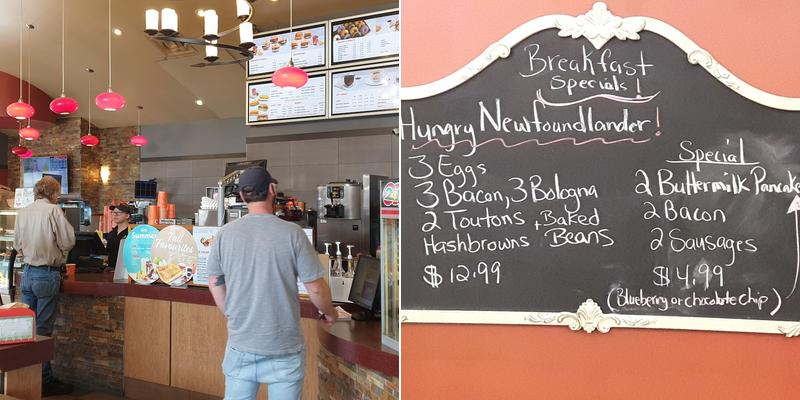 Summer
Fall
Favourites
Breakfast
Specials!
Hungry Newfoundlander!
3 Eggs
3 Bacon, 3 Bologna
2 Toutons + Baked
Hashbrowns Beans
$12.99
Special
2 Buttermilk Pancake
2 Bacon
2 Sausages
$4.99
(Blueberry or chocolate chip)